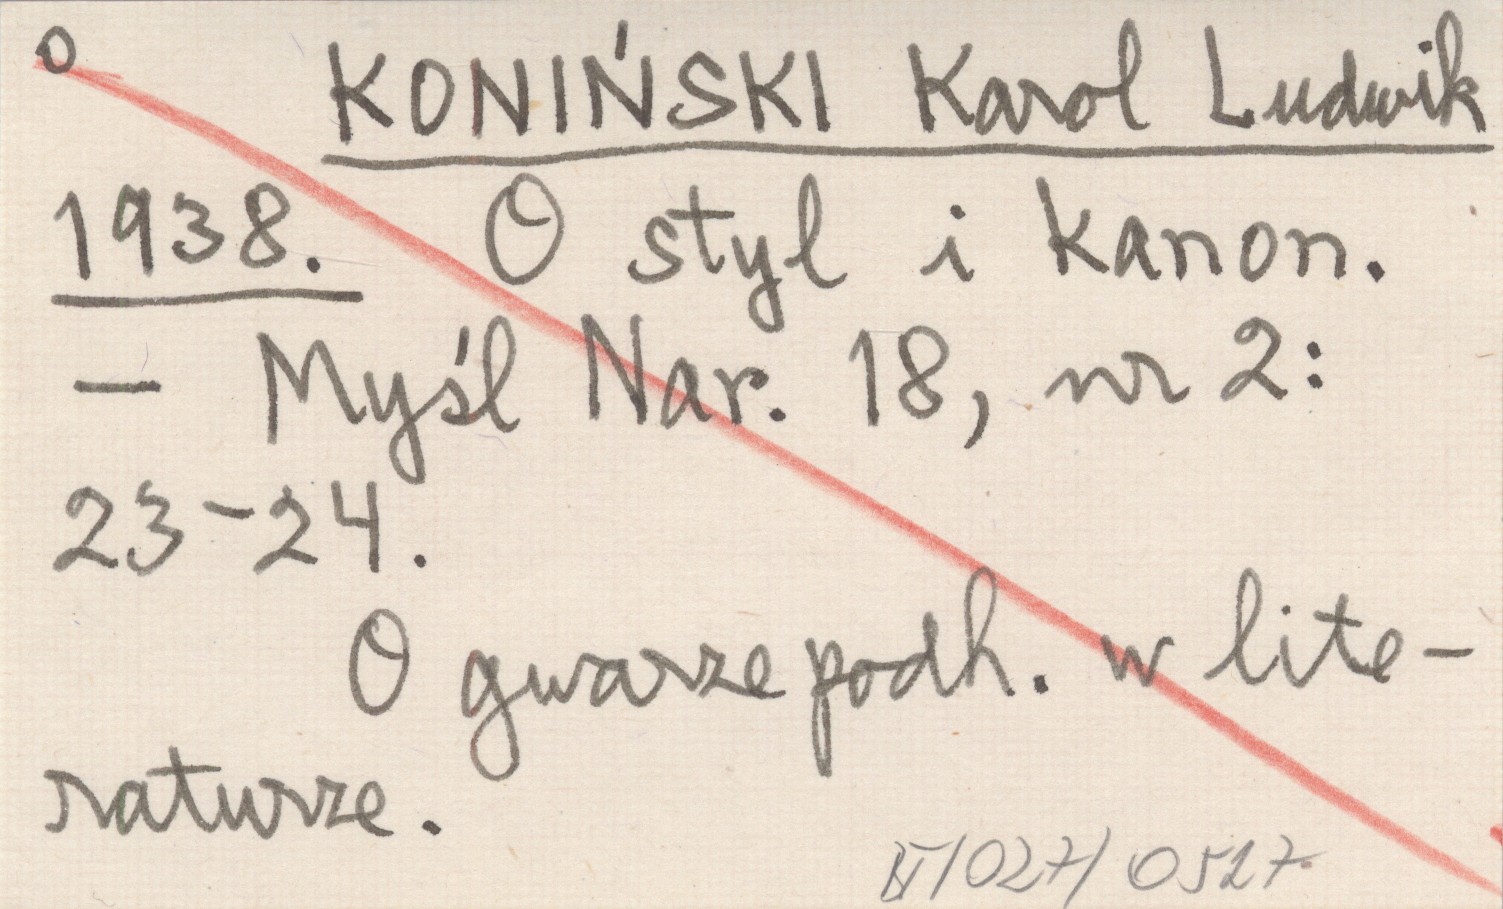 o KONIŃSKI Karol Ludwik
1938. O styl i kanon.
— Myśl Nar. 18, nr 2:
23-24.
O gwarze podh. w lite-
raturze.
IV/027/0527